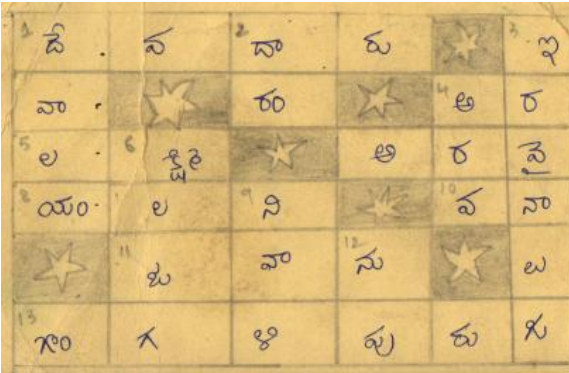 1 దే వ 2 దా రు 3 ఇ
వా రం 4 ఆ ర
5 ల 6 క్ష్మి అ ర వై
8 యం ల 9 ని 10 వ నా
11 జ వా 12 ను లు
13 గొం గ ళి పు రు గు